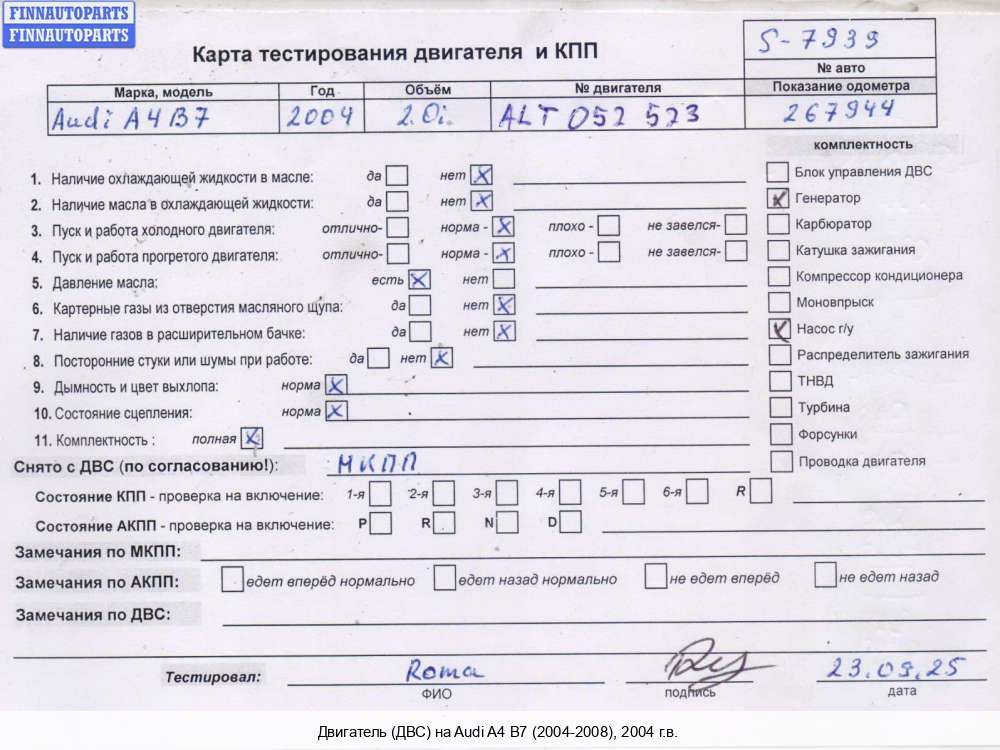 FINNAUTOPARTS
FINNAUTOPARTS
Карта тестирования двигателя и КПП
S-7939
№ авто
Марка, модель Год Объём № двигателя Показание одометра
Audi A4 B7 2004 2.0i. ALT 052 523 267944
комплектность
1. Наличие охлаждающей жидкости в масле: да нет
Блок управления ДВС
2. Наличие масла в охлаждающей жидкости: да нет
Генератор
3. Пуск и работа холодного двигателя: отлично- норма - плохо - не завелся-
Карбюратор
4. Пуск и работа прогретого двигателя: отлично- норма - плохо - не завелся-
Катушка зажигания
5. Давление масла: есть нет
Компрессор кондиционера
6. Картерные газы из отверстия масляного щупа: да нет
Моновпрыск
7. Наличие газов в расширительном бачке: да нет
Насос г/у
8. Посторонние стуки или шумы при работе: да нет
Распределитель зажигания
9. Дымность и цвет выхлопа: норма
ТНВД
10. Состояние сцепления: норма
Турбина
11. Комплектность : полная
Форсунки
Снято с ДВС (по согласованию!): МКПП
Проводка двигателя
Состояние КПП - проверка на включение: 1-я 2-я 3-я 4-я 5-я 6-я R
Состояние АКПП - проверка на включение: P R N D
Замечания по МКПП:
Замечания по АКПП: едет вперёд нормально едет назад нормально не едет вперёд не едет назад
Замечания по ДВС:
Тестировал: Roma 23.09.25
ФИО подпись дата
Двигатель (ДВС) на Audi A4 B7 (2004-2008), 2004 г.в.